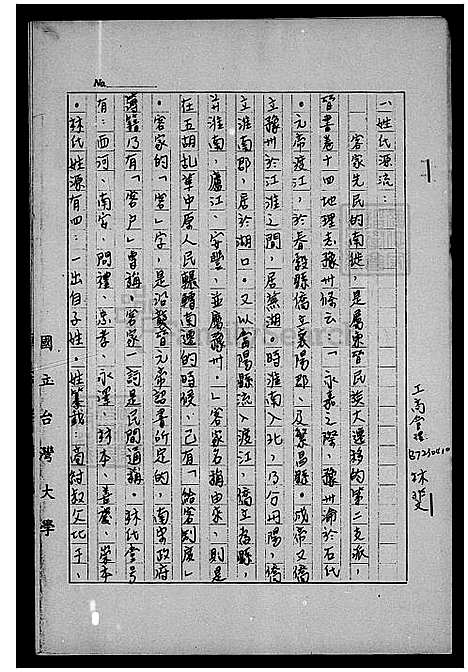 No.
一、姓氏源流：
客家先民的南徙，是屬東晉民族大遷移的第二支派，
晉書卷十四地理志豫州條云：「永嘉之際，豫州淪於石氏
。元帝渡江，於春穀縣僑立襄陽郡，及繁昌縣。成帝又僑
立豫州於江淮之間，居蕪湖。時淮南入北，乃分丹陽，僑
立淮南郡，居於湖口。又以當陽縣流入渡江，僑立為縣，
并淮南，廬江，安豐，並屬豫州。」客家名稱由來，則是
在五胡亂華中原人民輾轉南遷的時候，已有「給客制度」
。客家的「客」字，是沿襲晉元帝詔書所定的，南宋政府
簿籍乃有「客户」專稱，客家一詞是民間通稱。林氏堂號
有：西河、南安、問禮、忠孝、永澤、林本、善慶、崇本
。林氏姓源有四：一出自子姓。姓纂載：商紂叔父比干，
工商管理
B7230410
林斐
國立台灣大學
FamilySearch